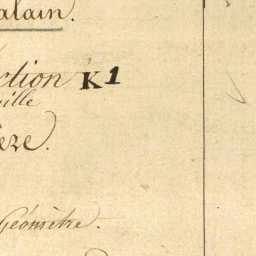 alain.
ction K1
ille
ère.
Géomètre.